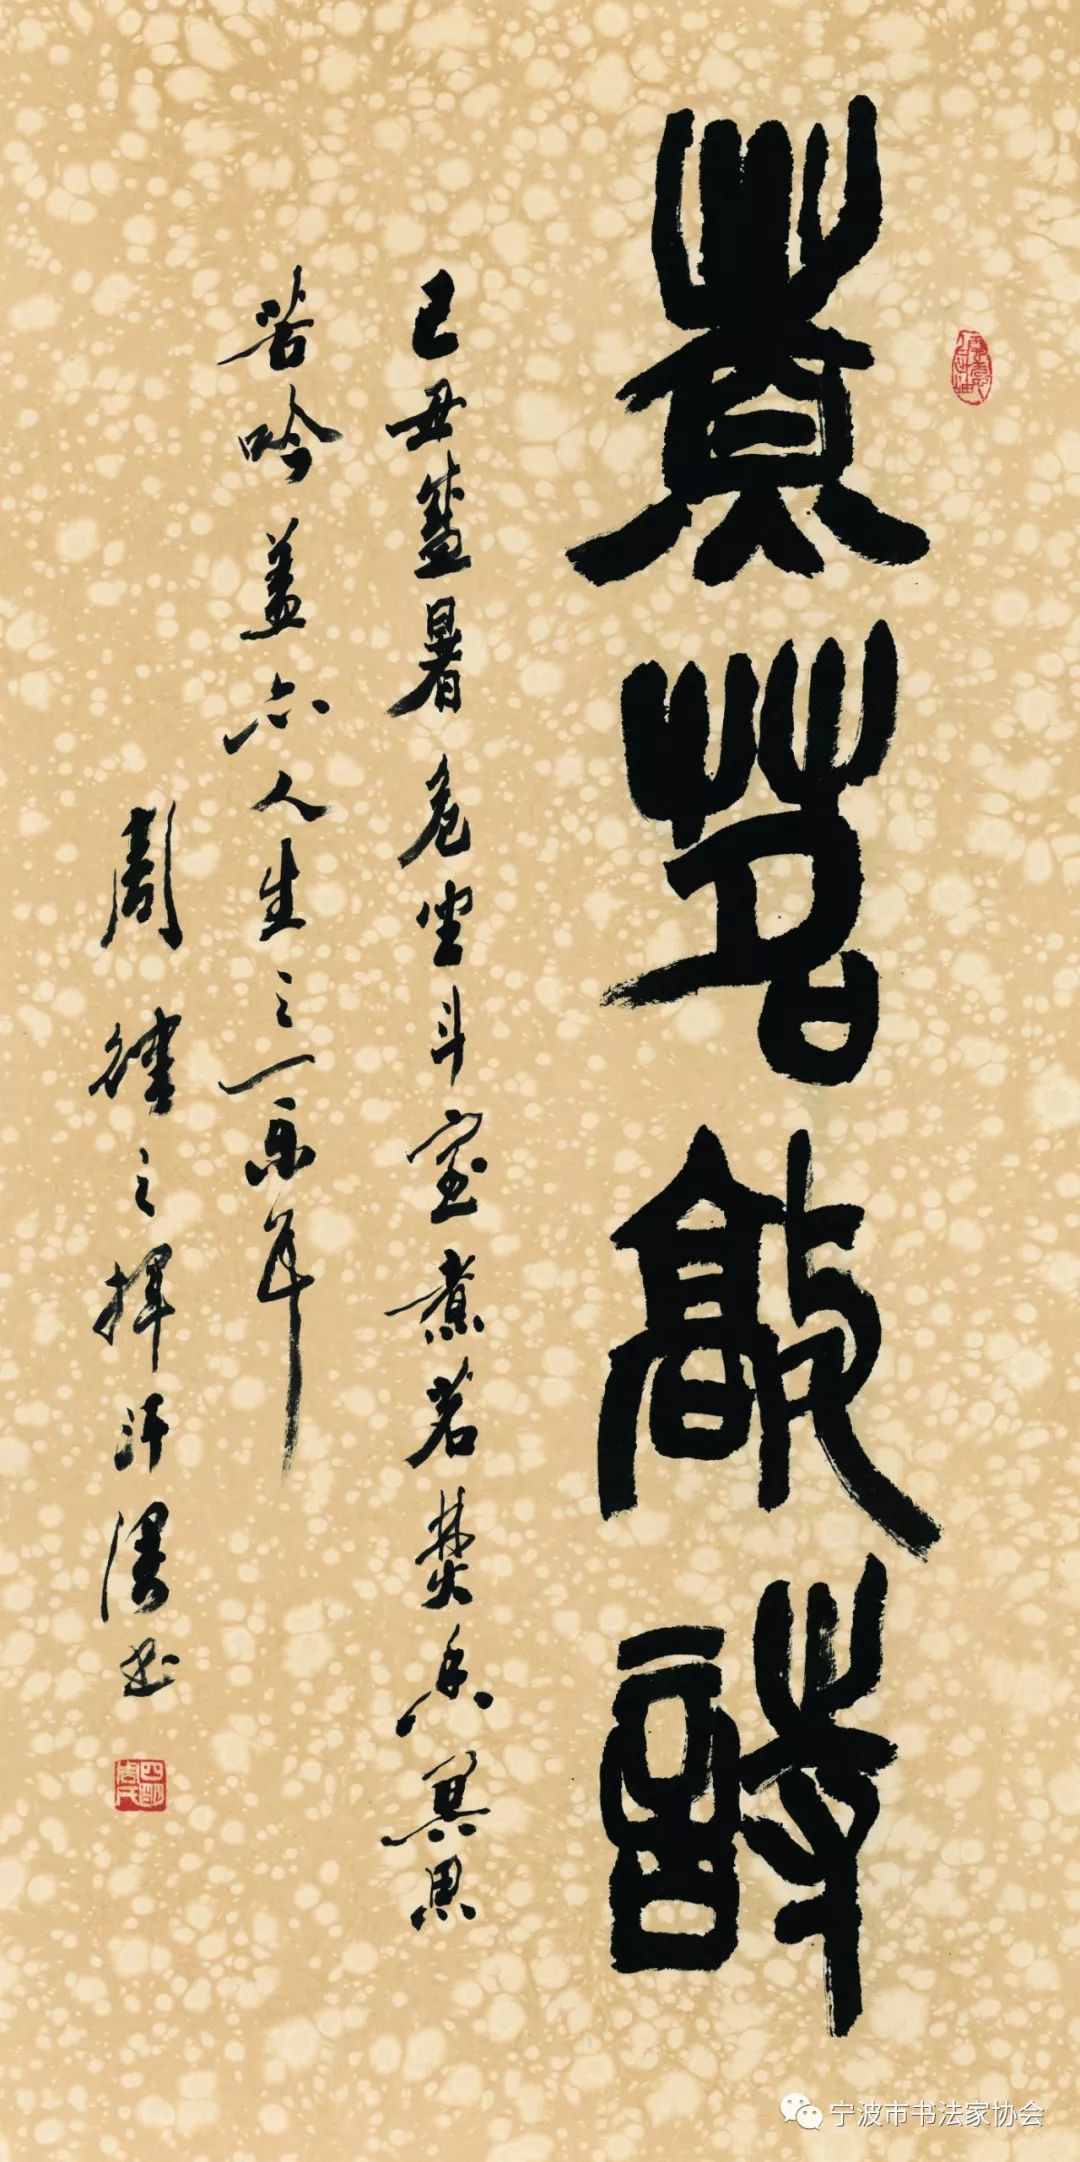 煮茗敲詩
己丑盛暑危坐斗室煮茗焚香冥思
苦吟盖亦人生之一乐耳
周律之揮汗漫书
四明周氏
宁波市书法家协会